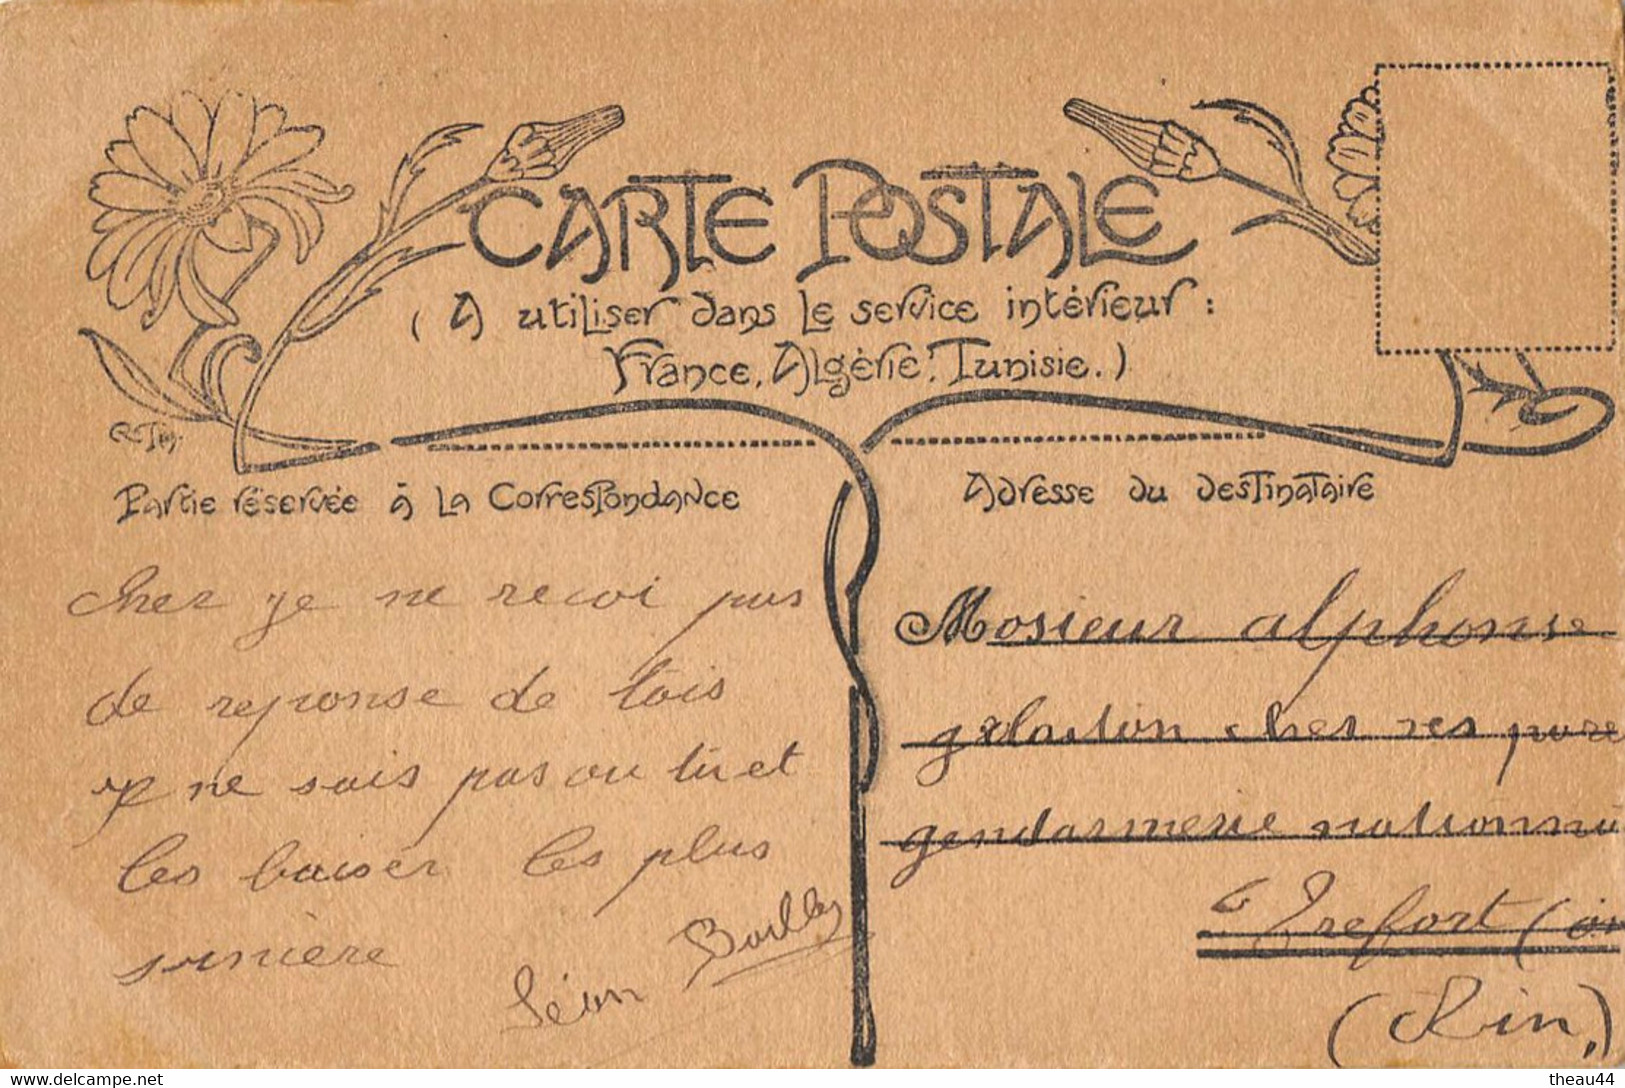 CARTE POSTALE
(A utiliser dans le service intérieur :
France, Algérie, Tunisie.)
Partie réservée à la Correspondance
Adresse du destinataire
cher je ne recoi pas
de reponse de tois
ne sais pas ou tu et
les baiser les plus
Léon Bailly
Mosieur alphonse
cher ses pare
gendarmerie nationna
Trefort (
(Ain)
www.delcampe.net
theau44